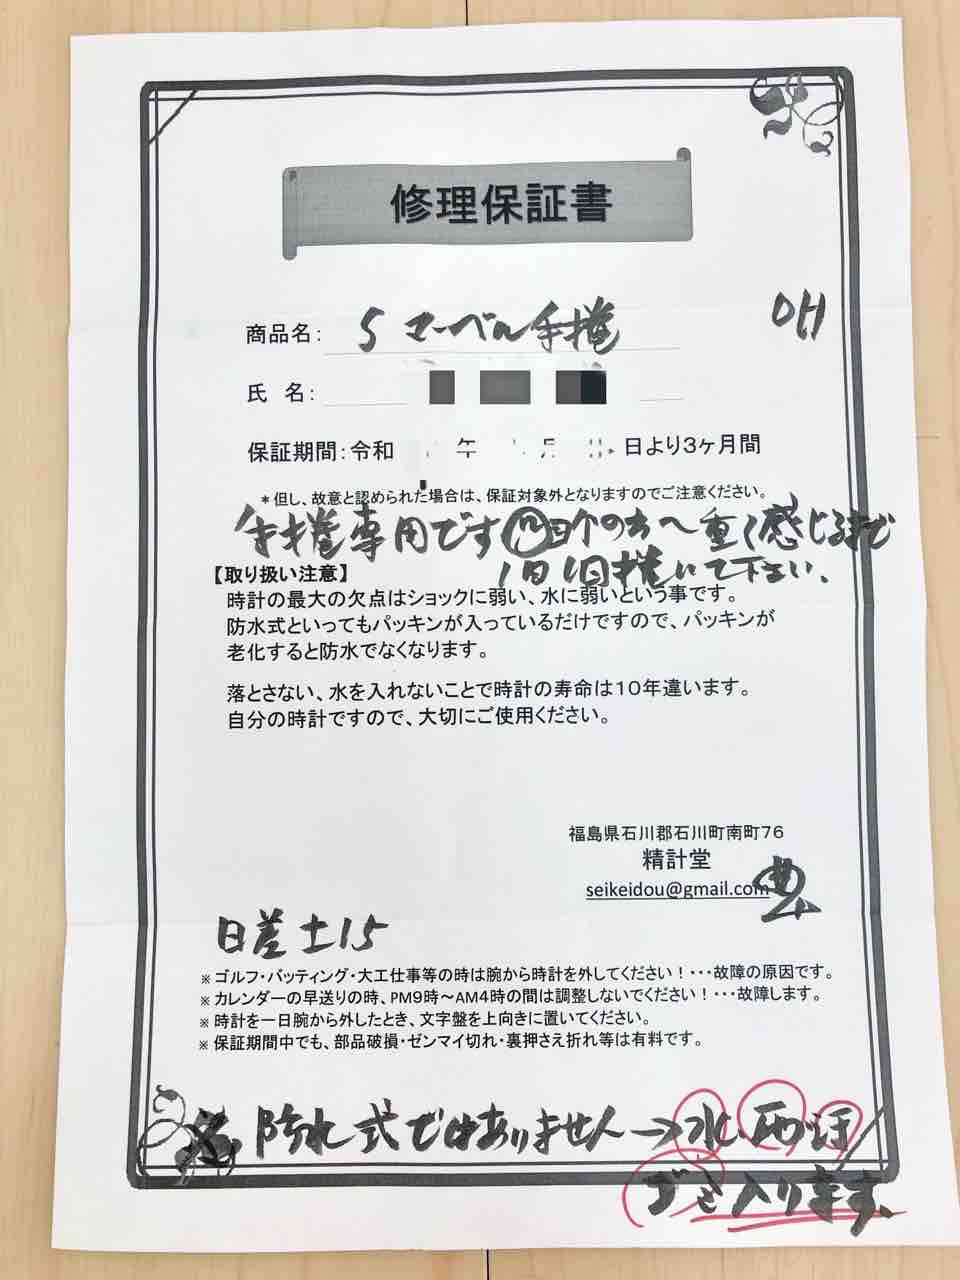 修理保証書
OH
商品名: S マーベル手捲
氏 名:
保証期間:令和 年 月 日より3ヶ月間
*但し、故意と認められた場合は、保証対象外となりますのでご注意ください。
手捲専用です の方へ重く感じるまで
1日1回捲いて下さい.
【取り扱い注意】
時計の最大の欠点はショックに弱い、水に弱いという事です。
防水式といってもパッキンが入っているだけですので、パッキンが
老化すると防水でなくなります。
落とさない、水を入れないことで時計の寿命は10年違います。
自分の時計ですので、大切にご使用ください。
福島県石川郡石川町南町76
精計堂
seikeidou@gmail.com
日差±15
※ ゴルフ・バッティング・大工仕事等の時は腕から時計を外してください!・・・故障の原因です。
※ カレンダーの早送りの時、PM9時～AM4時の間は調整しないでください!・・・故障します。
※ 時計を一日腕から外したとき、文字盤を上向きに置いてください。
※ 保証期間中でも、部品破損・ゼンマイ切れ・裏押さえ折れ等は有料です。
防水式ではありません→水 雨 汗
ゴミ入ります.